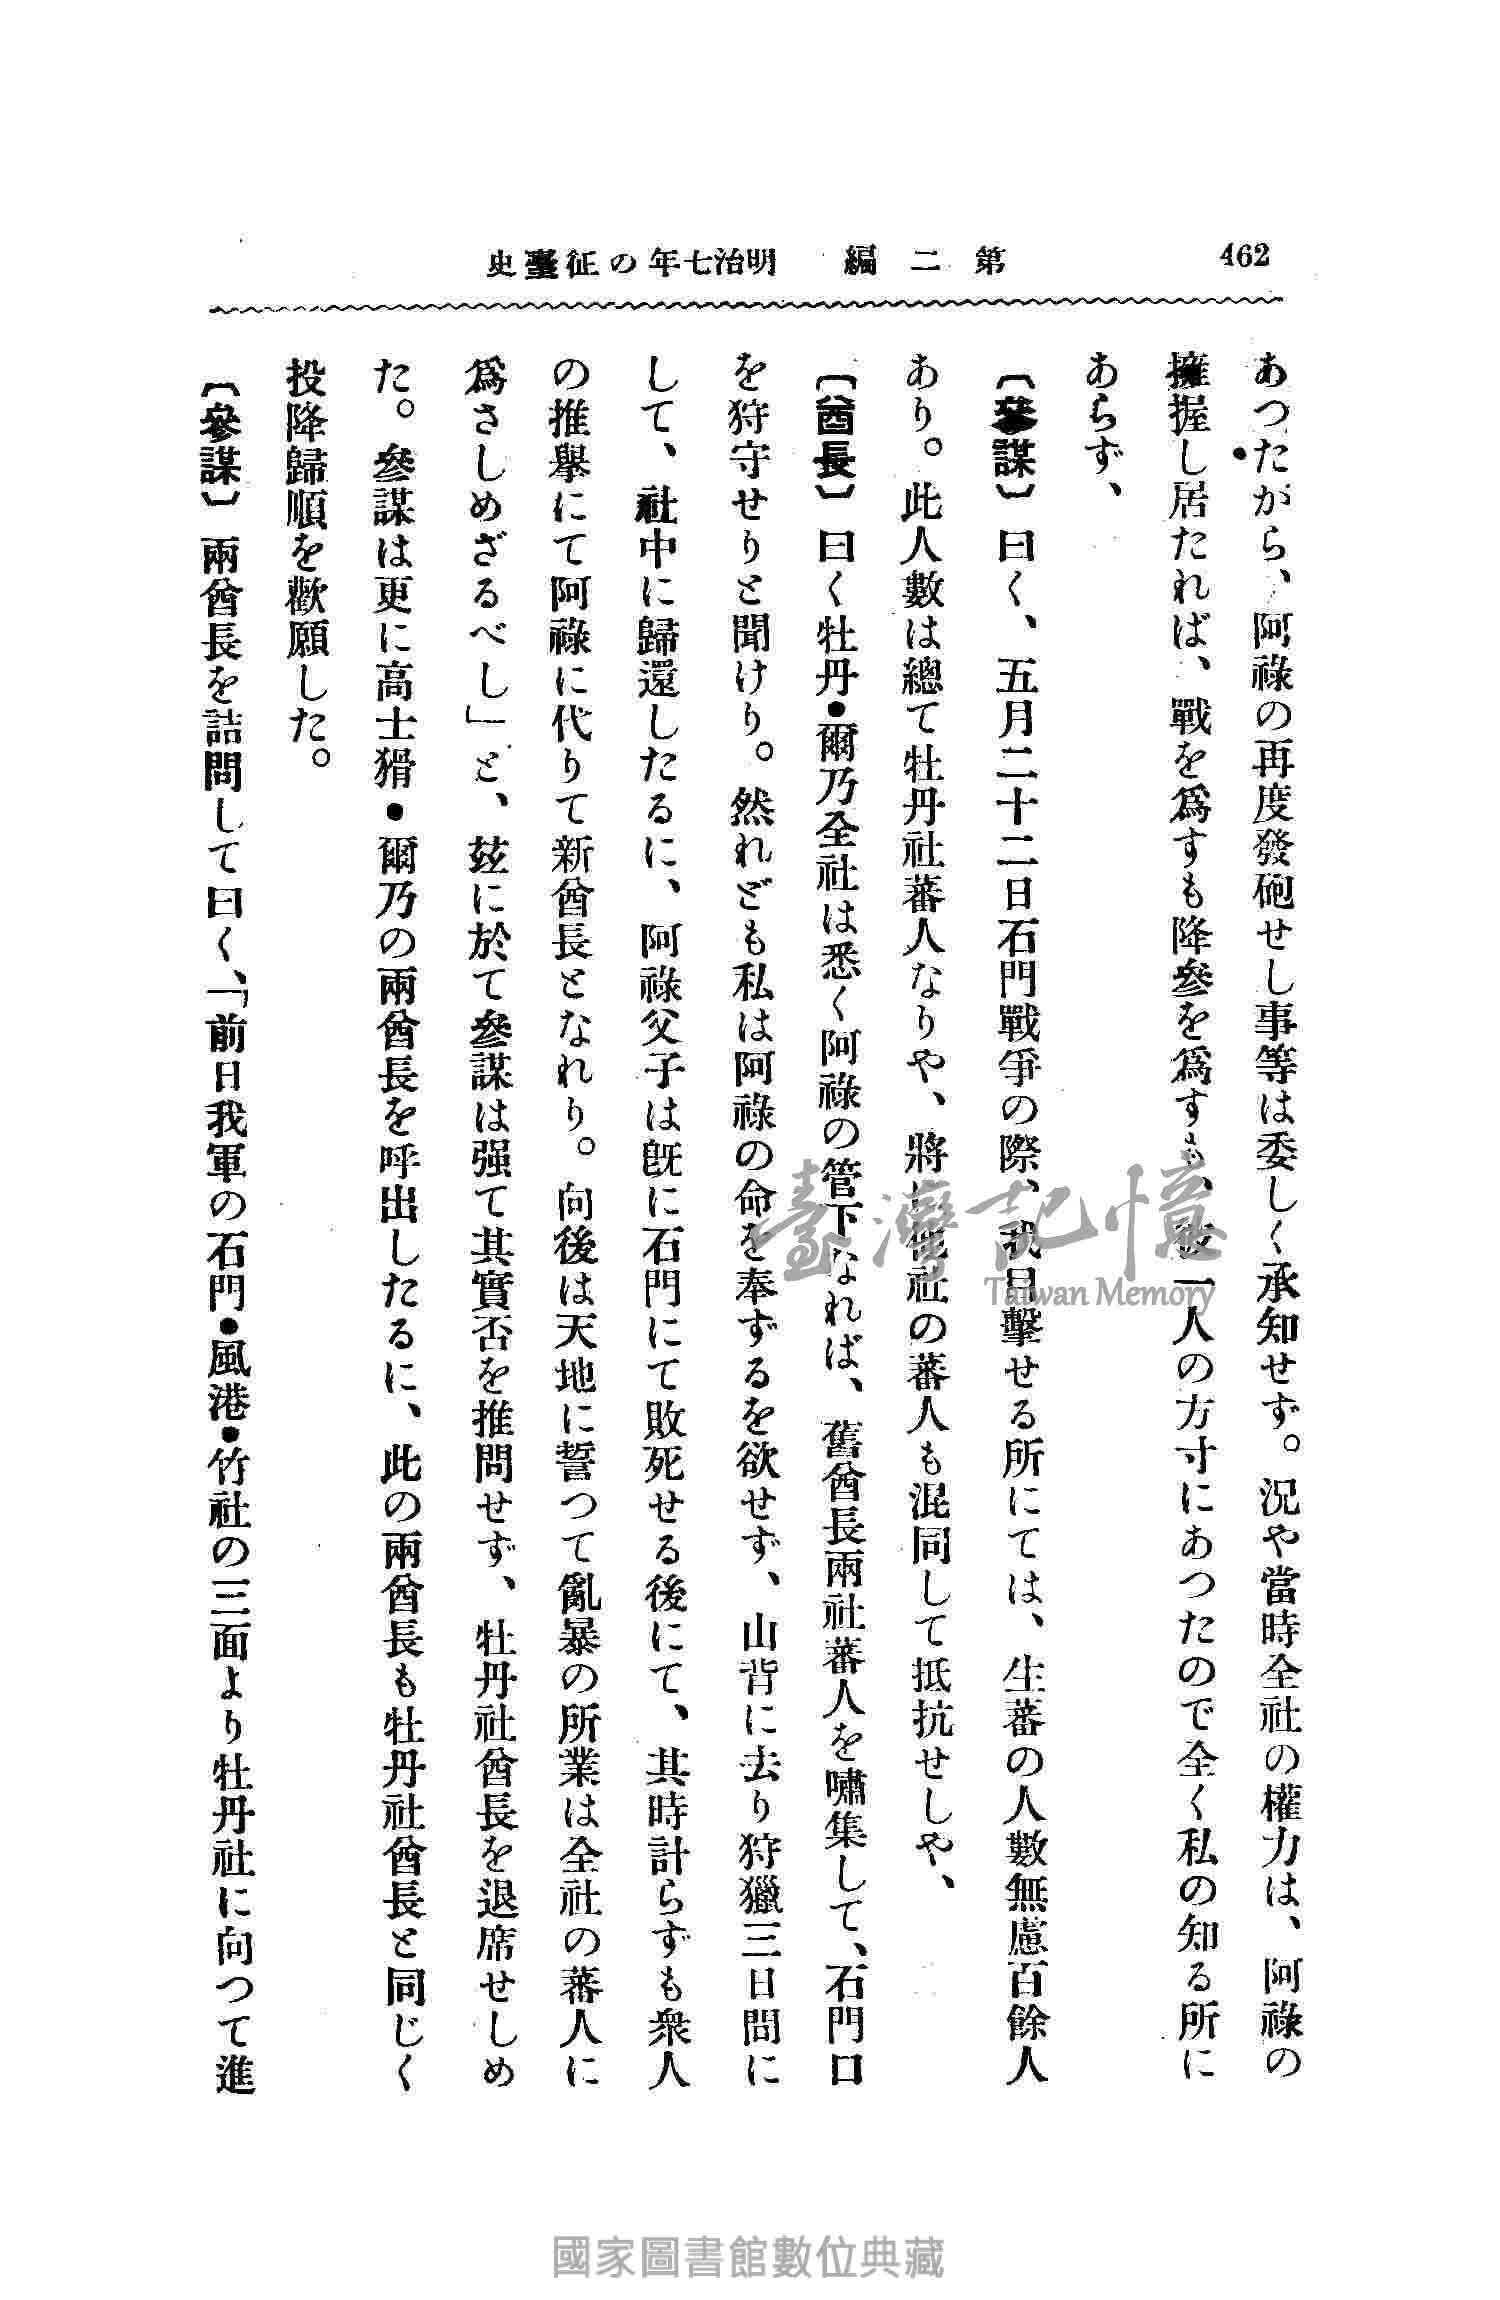 462
第二編　明治七年の征臺史
あつたがら、阿祿の再度發砲せし事等は委しく承知せず。況や當時全社の權力は、阿祿の
擁握し居たれば、戰を爲すも降參を爲すも、彼一人の方寸にあつたので全く私の知る所に
あらず、
〔參謀〕曰く、五月二十二日石門戰爭の際、我目擊せる所にては、生蕃の人數無慮百餘人
あり。此人數は總て牡丹社蕃人なりや、將他社の蕃人も混同して抵抗せしや、
〔酋長〕曰く牡丹●爾乃全社は悉く阿祿の管下なれば、舊酋長兩社蕃人を嘯集して、石門口
を狩守せりと聞けり。然れども私は阿祿の命を奉ずるを欲せず、山背に去り狩獵三日問に
して、社中に歸還したるに、阿祿父子は旣に石門にて敗死せる後にて、其時計らずも衆人
の推擧にて阿祿に代りて新酋長となれり。向後は天地に誓つて亂暴の所業は全社の蕃人に
爲さしめざるべし」と、茲に於て參謀は强て其實否を推問せず、牡丹社酋長を退席せしめ
た。參謀は更に高士猾●爾乃の兩酋長を呼出したるに、此の兩酋長も牡丹社酋長と同じく
投降歸順を歡願した。
〔參謀〕兩酋長を詰問して曰く、「前日我軍の石門●風港●竹社の三面より牡丹社に向つて進
臺灣記憶
Taiwan Memory
國家圖書館數位典藏